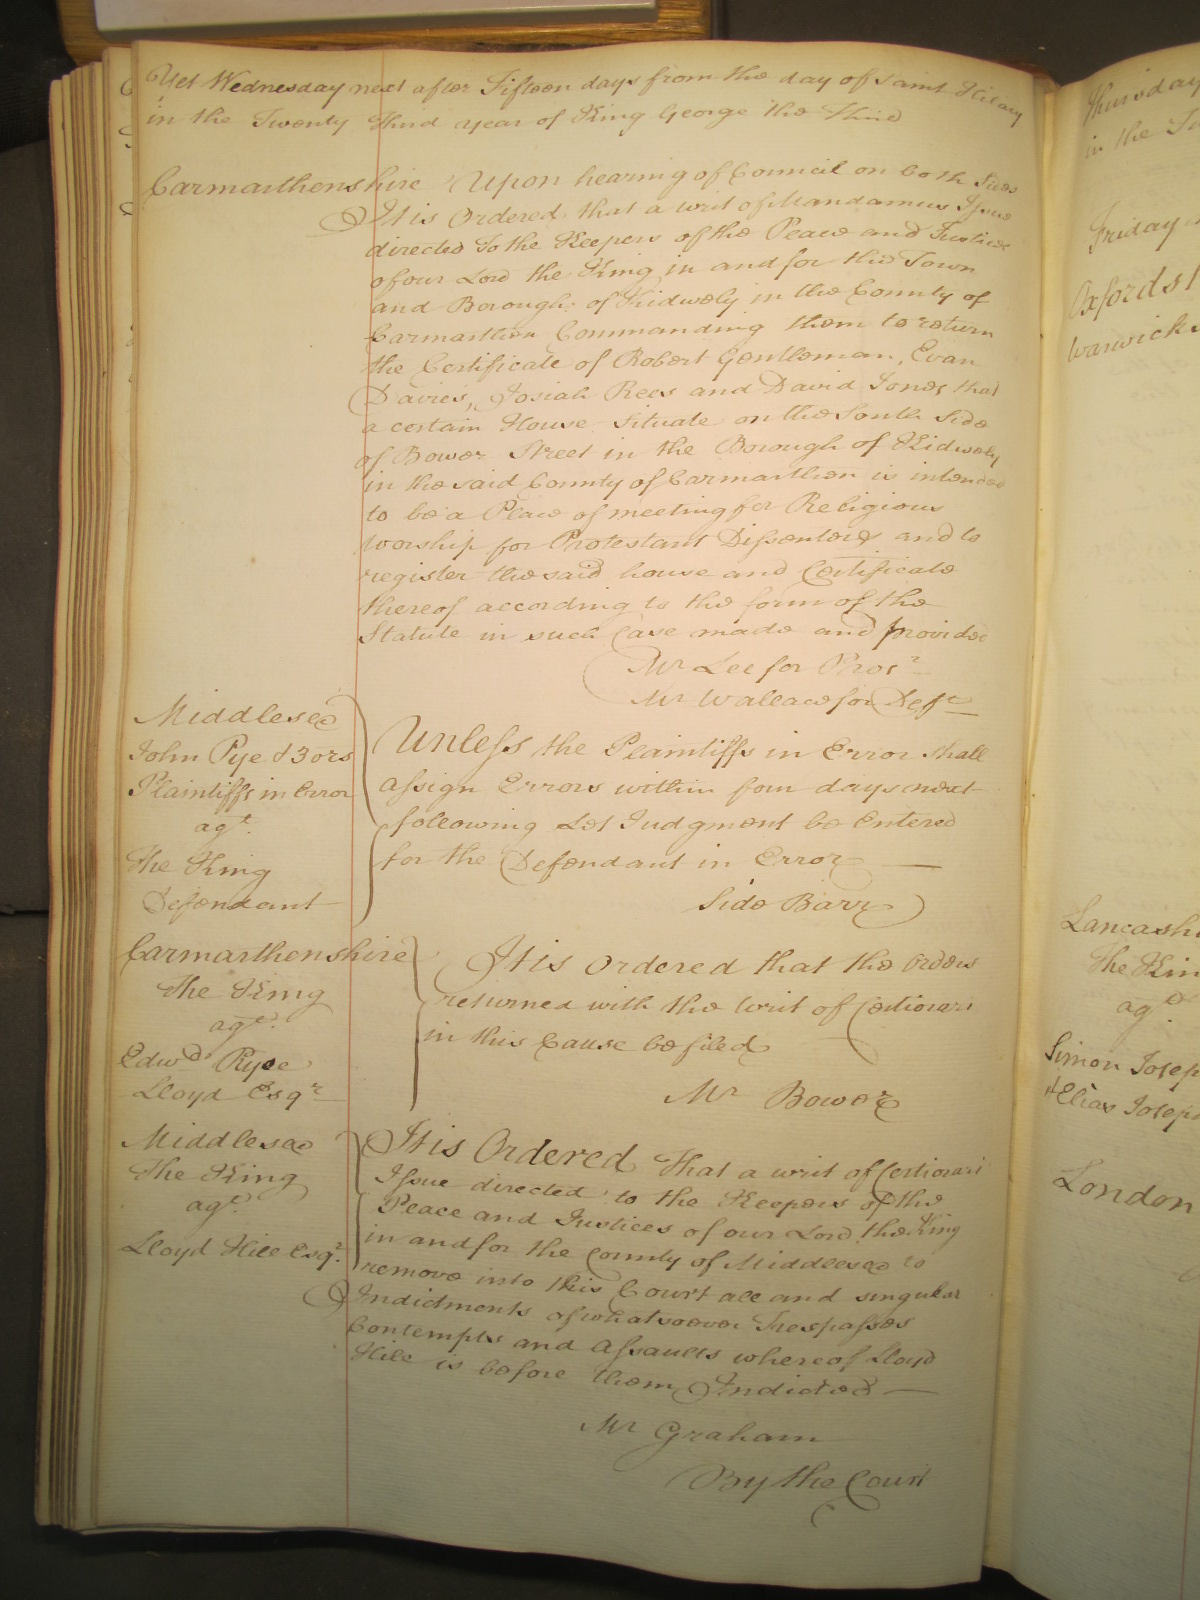 Yet Wednesday next after Fifteen days from the day of Saint Hilary
in the Twenty Third year of King George the Third
Carmarthenshire Upon hearing of Council on both Sides
It is Ordered that a writ of Mandamus Issue
directed To the Keepers of the Peace and Justices
of our Lord the King in and for the Town
and Borough of Kidwely in the County of
Carmarthen Commanding them to return
the Certificate of Robert Gentleman, Evan
Davies, Josiah Rees and David Jones that
a certain House Situate on the South Side
of Bower Street in the Borough of Kidwely
in the said County of Carmarthen is intended
to be a Place of meeting for Religious
Worship for Protestant Dissenters and to
register the said house and Certificate
thereof according to the form of the
Statute in such Case made and provided
Mr Lee for Prosr
Mr Wallace for Deft
Middlesex
John Pye & 3 ors
Plaintiffs in Error
agt.
The King
Defendant
Unless the Plaintiffs in Error shall
assign Errors within four days next
following Let Judgment be Entered
for the Defendant in Error
Side Barr
Carmarthenshire
The King
agt.
Edwd Pryce
Lloyd Esqr
It is Ordered that the Orders
returned with the Writ of Certiorari
in this Cause be filed
Mr Bower
Middlesex
The King
agt.
Lloyd Hill Esqr.
It is Ordered that a writ of Certiorari
Issue directed to the Keepers of the
Peace and Justices of our Lord the King
in and for the County of Middlesex to
remove into this Court all and singular
Indictments of whatsoever Trespasses
Contempts and Assaults whereof Lloyd
Hill is before them Indicted
Mr Graham
By the Court
Thursday
in the
Friday
Oxfords
Warwick
Lancashi
The Kin
agt.
Simon Josep
& Elias Josep
London